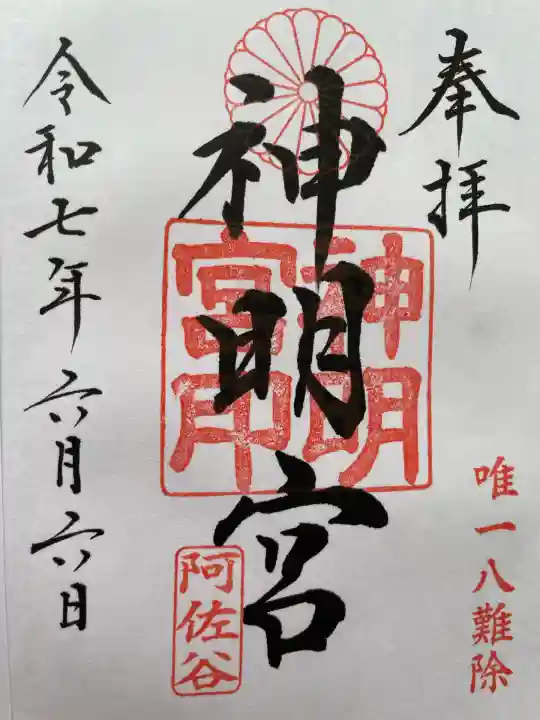 奉拝
唯一八難除
神明宮
神明
宮印
阿佐谷
令和七年六月六日